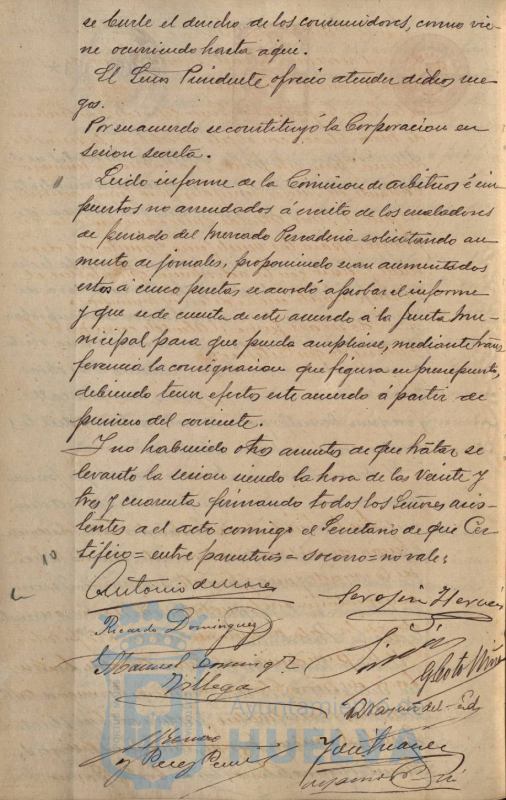 se burle el derecho de los consumidores, como vie-
ne ocurriendo hasta aqui.
El Señor Presidente ofreció atender dichos rue-
gos.
Por su acuerdo se constituyó la Corporacion en
sesion secreta.
Leido informe de la Comision de arbitrios é im-
puestos no arrendados á escrito de los
de pescado del Mercado Pescaderia solicitando au-
mento de jornales, proponiendo sean aumentados
estos á cinco pesetas se acordó aprobar el informe
y que se de cuenta de este acuerdo a la Junta Mu-
nicipal para que pueda ampliarse, mediante trans
ferencia la consignacion que figura en presupuesto,
debiendo tener efectos este acuerdo á partir de
primero del corriente.
Y no habiendo otros asuntos de que tratar se
levantó la sesion siendo la hora de las veinte y
tres y cuarenta firmando todos los Señores asis-
tentes a el acto conmigo el Secretario de que Cer-
tifico = entre parentesis = socorro = no vale:
10
Antonio de Mora
Serafin
Ricardo Dominguez
Manuel Dominguez
Villega
y Perez
Ayuntamiento de
HUELVA